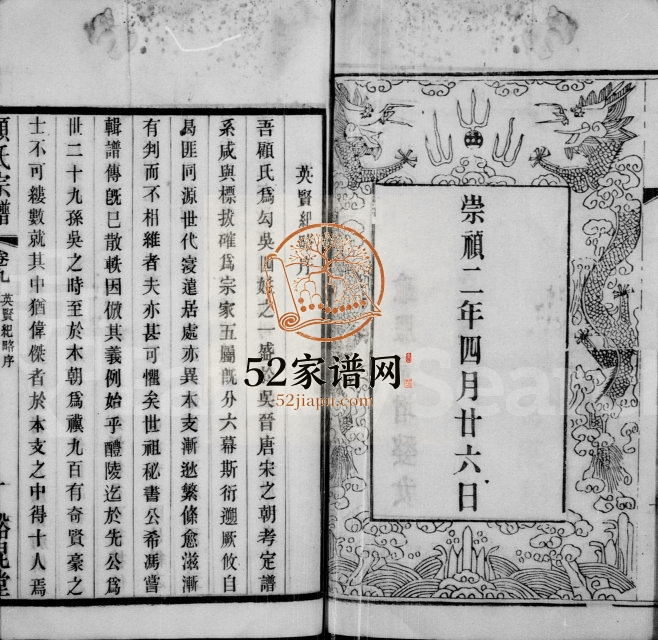 崇禎二年四月廿六日
英賢紀略序
吾顧氏為勾吳四姓之一盛於吳晉唐宋之朝考定譜
系咸與標拔確為宗家五屬既分六幕斯衍遡厥攸自
曷匪同源世代寖遠居處亦異本支漸逖繁條愈滋漸
有判而不相維者夫亦甚可懼矣世祖秘書公希馮嘗
輯譜傳既巳散軼因倣其義例始乎醴陵迄於先公為
世二十九孫吳之時至於本朝為禩九百有奇賢豪之
士不可縷數就其中猶偉傑者於本支之中得十人焉
顧氏宗譜
卷九
英賢紀略序
一
52家谱网
52jiapu.com